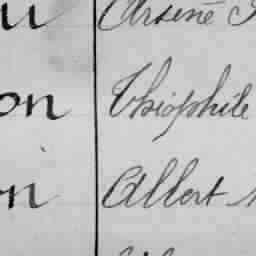 u Arsène
on Théophile
on Albert